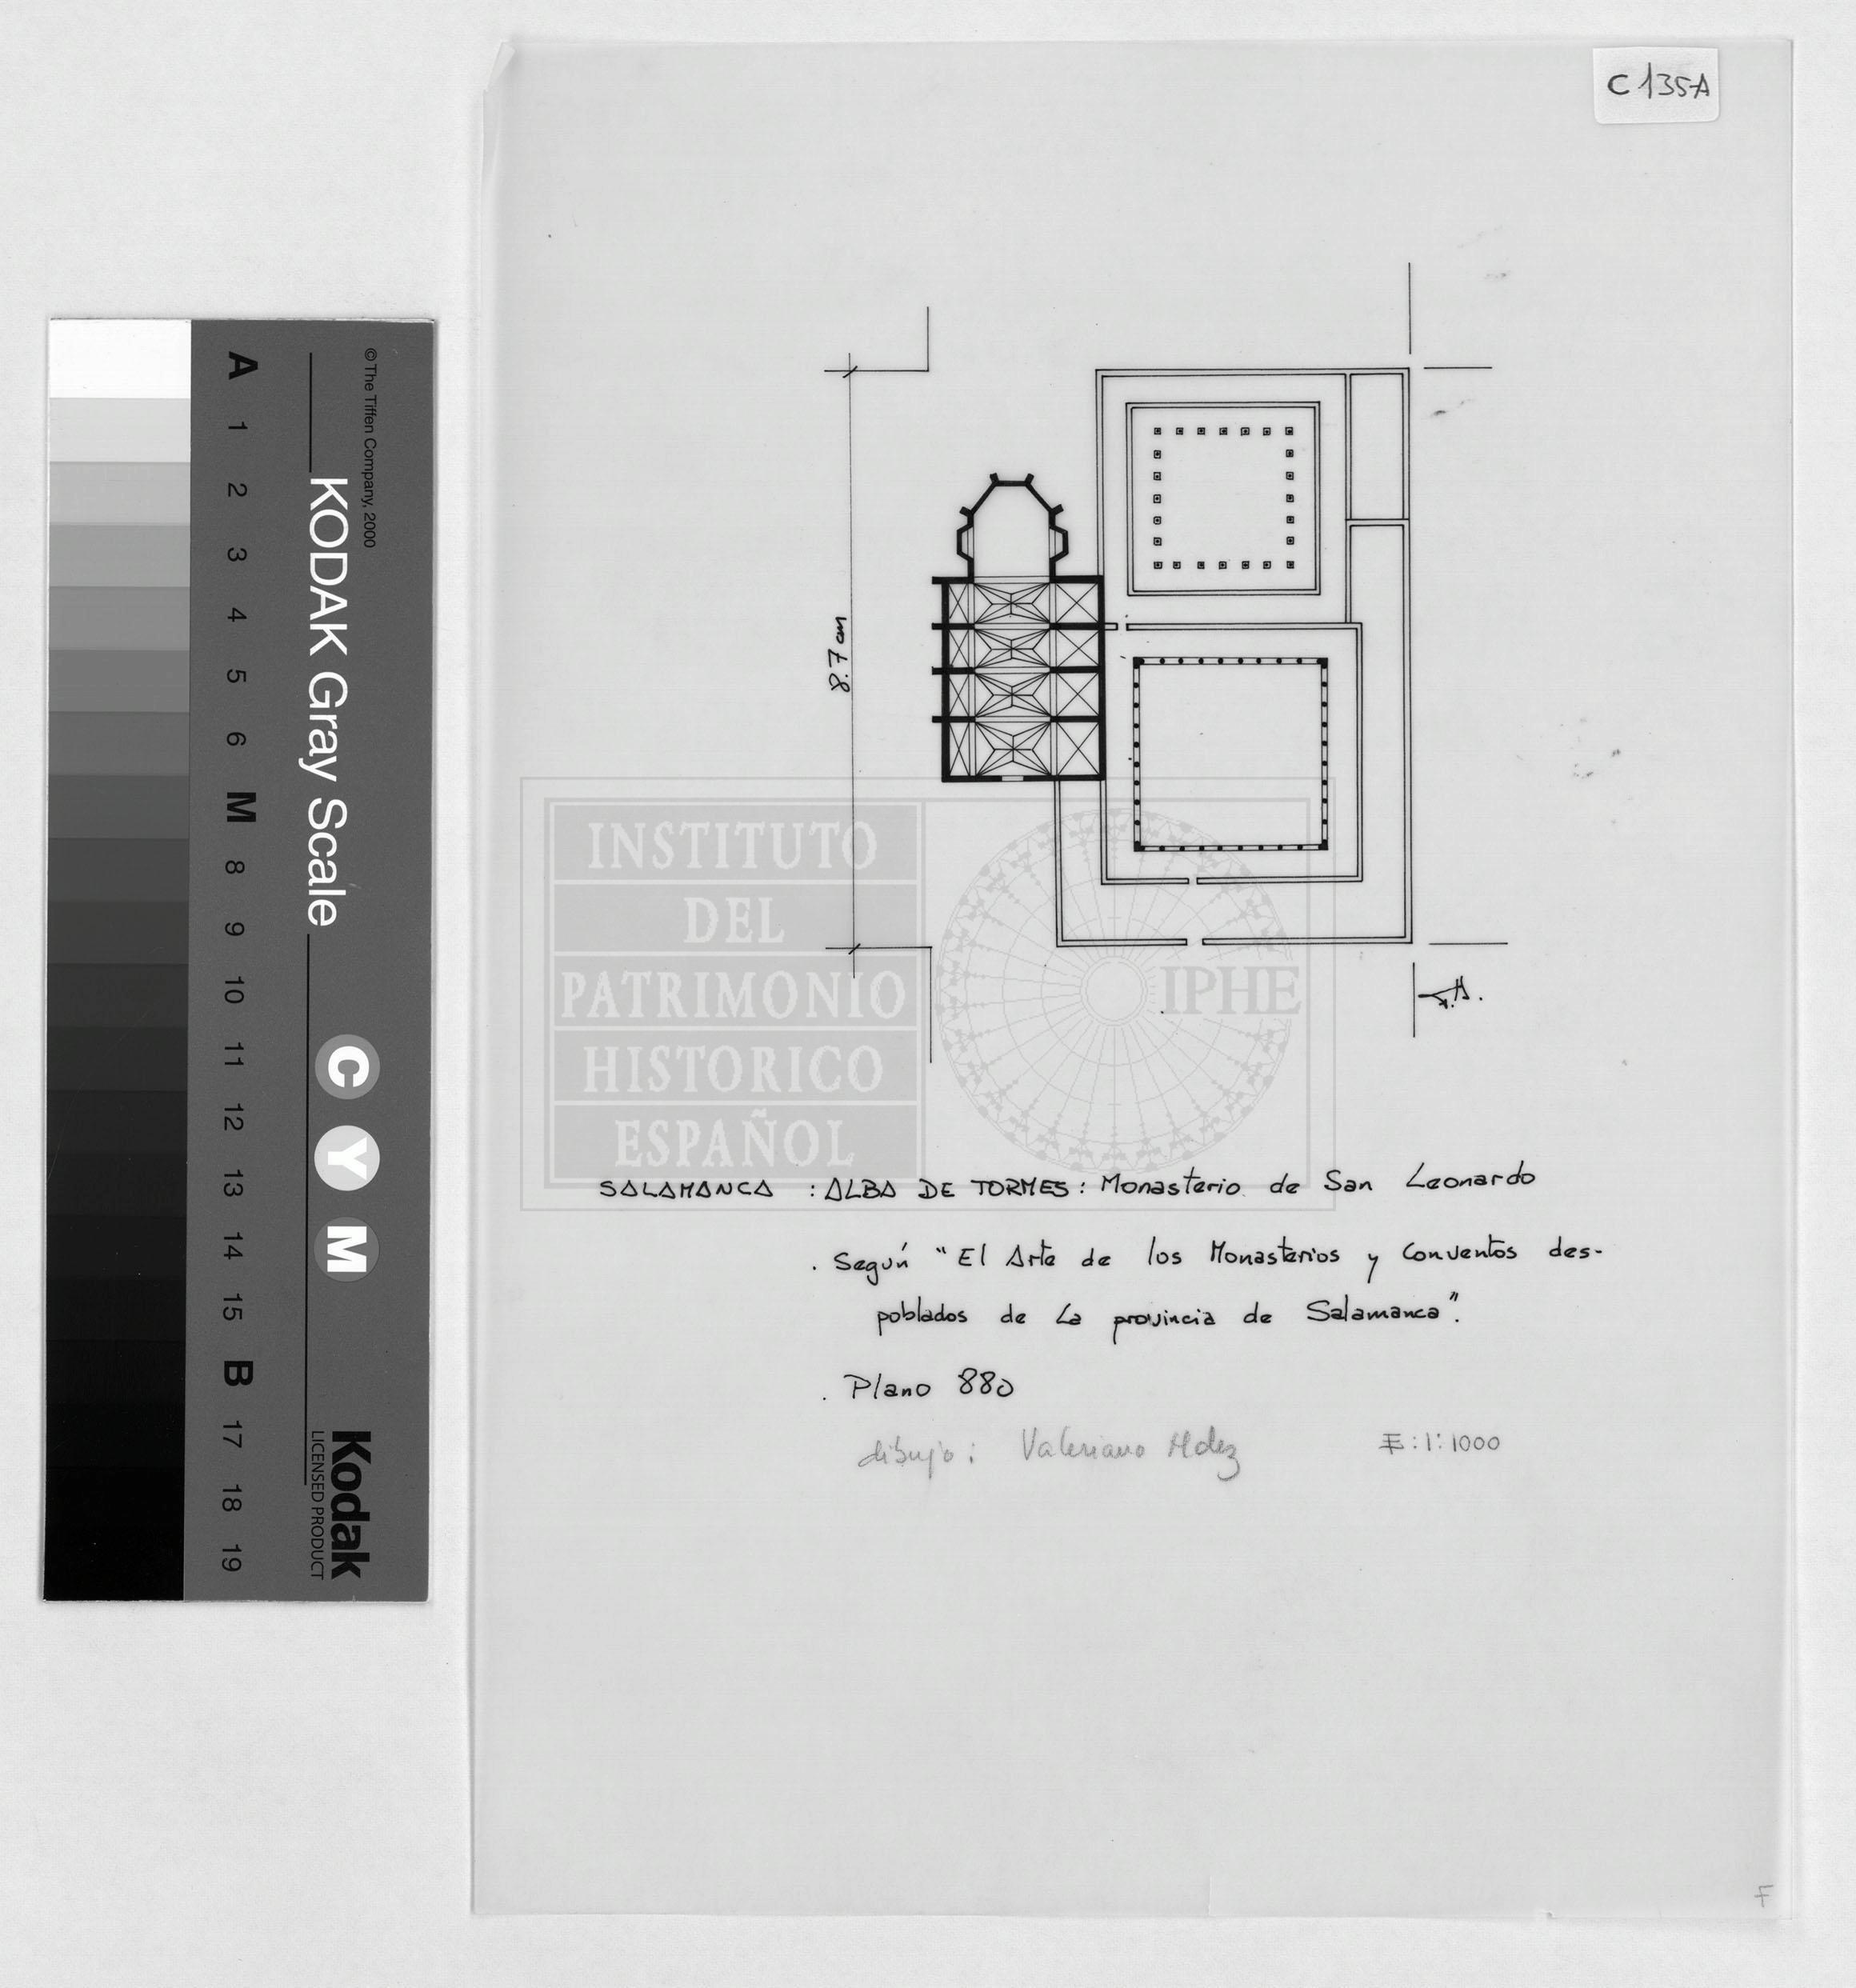 C 135A
© The Tiffen Company, 2000
KODAK Gray Scale
A 1 2 3 4 5 6 M 8 9 10 11 12 13 14 15 B 17 18 19
C Y M
Kodak
LICENSED PRODUCT
8'7cm
INSTITUTO
DEL
PATRIMONIO
HISTORICO
ESPAÑOL
IPHE
SALAMANCA : ALBA DE TORMES: Monasterio de San Leonardo
. Según "El Arte de los Monasterios y Conventos des-
poblados de La provincia de Salamanca".
. Plano 880
dibujo: Valeriano Hdez
E:1:1000
F